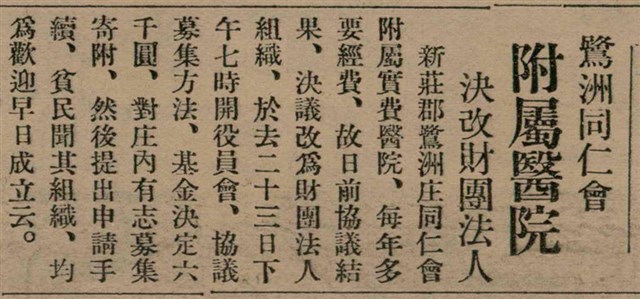 鷺洲同仁會
附屬醫院
決改財團法人
新莊郡鷺洲庄同仁會
附屬實費醫院、每年多
要經費、故日前協議結
果、決議改爲財團法人
組織、於去二十三日下
午七時開役員會、協議
募集方法、基金決定六
千圓、對庄內有志募集
寄附、然後提出申請手
續、貧民聞其組織、均
爲歡迎早日成立云。